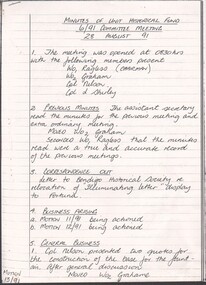 MINUTES OF UNIT HISTORICAL FUND
6/91 COMMITTEE MEETING
28 AUGUST 91
1. The meeting was opened at 0830hrs
with the following members present
WO2 Rayboss (CHAIRMAN)
WO2 Graham
Cpl Nelson
Cpl Shirley
2. PREVIOUS MINUTES The assistant secretary
read the minutes for the previous meeting and
extra ordinary meeting.
MOVED WO2 Graham
Seconded WO2 Rayboss that the minutes
read were a true and accurate record
of the previous meetings.
3. CORRESPONDENCE OUT
Letter to Bendigo Historical Society re
relocation of Illuminating letter display
to Fortuna.
4. BUSINESS ARISING
a. Motion 11/91 being actioned
b. Motion 12/91 being actioned
5. GENERAL BUSINESS
1. Cpl Nelson presented two quotes for
the construction of the base for the fount-
ain. After general discussion
Motion
13/91
MOVED WO2 Grahame